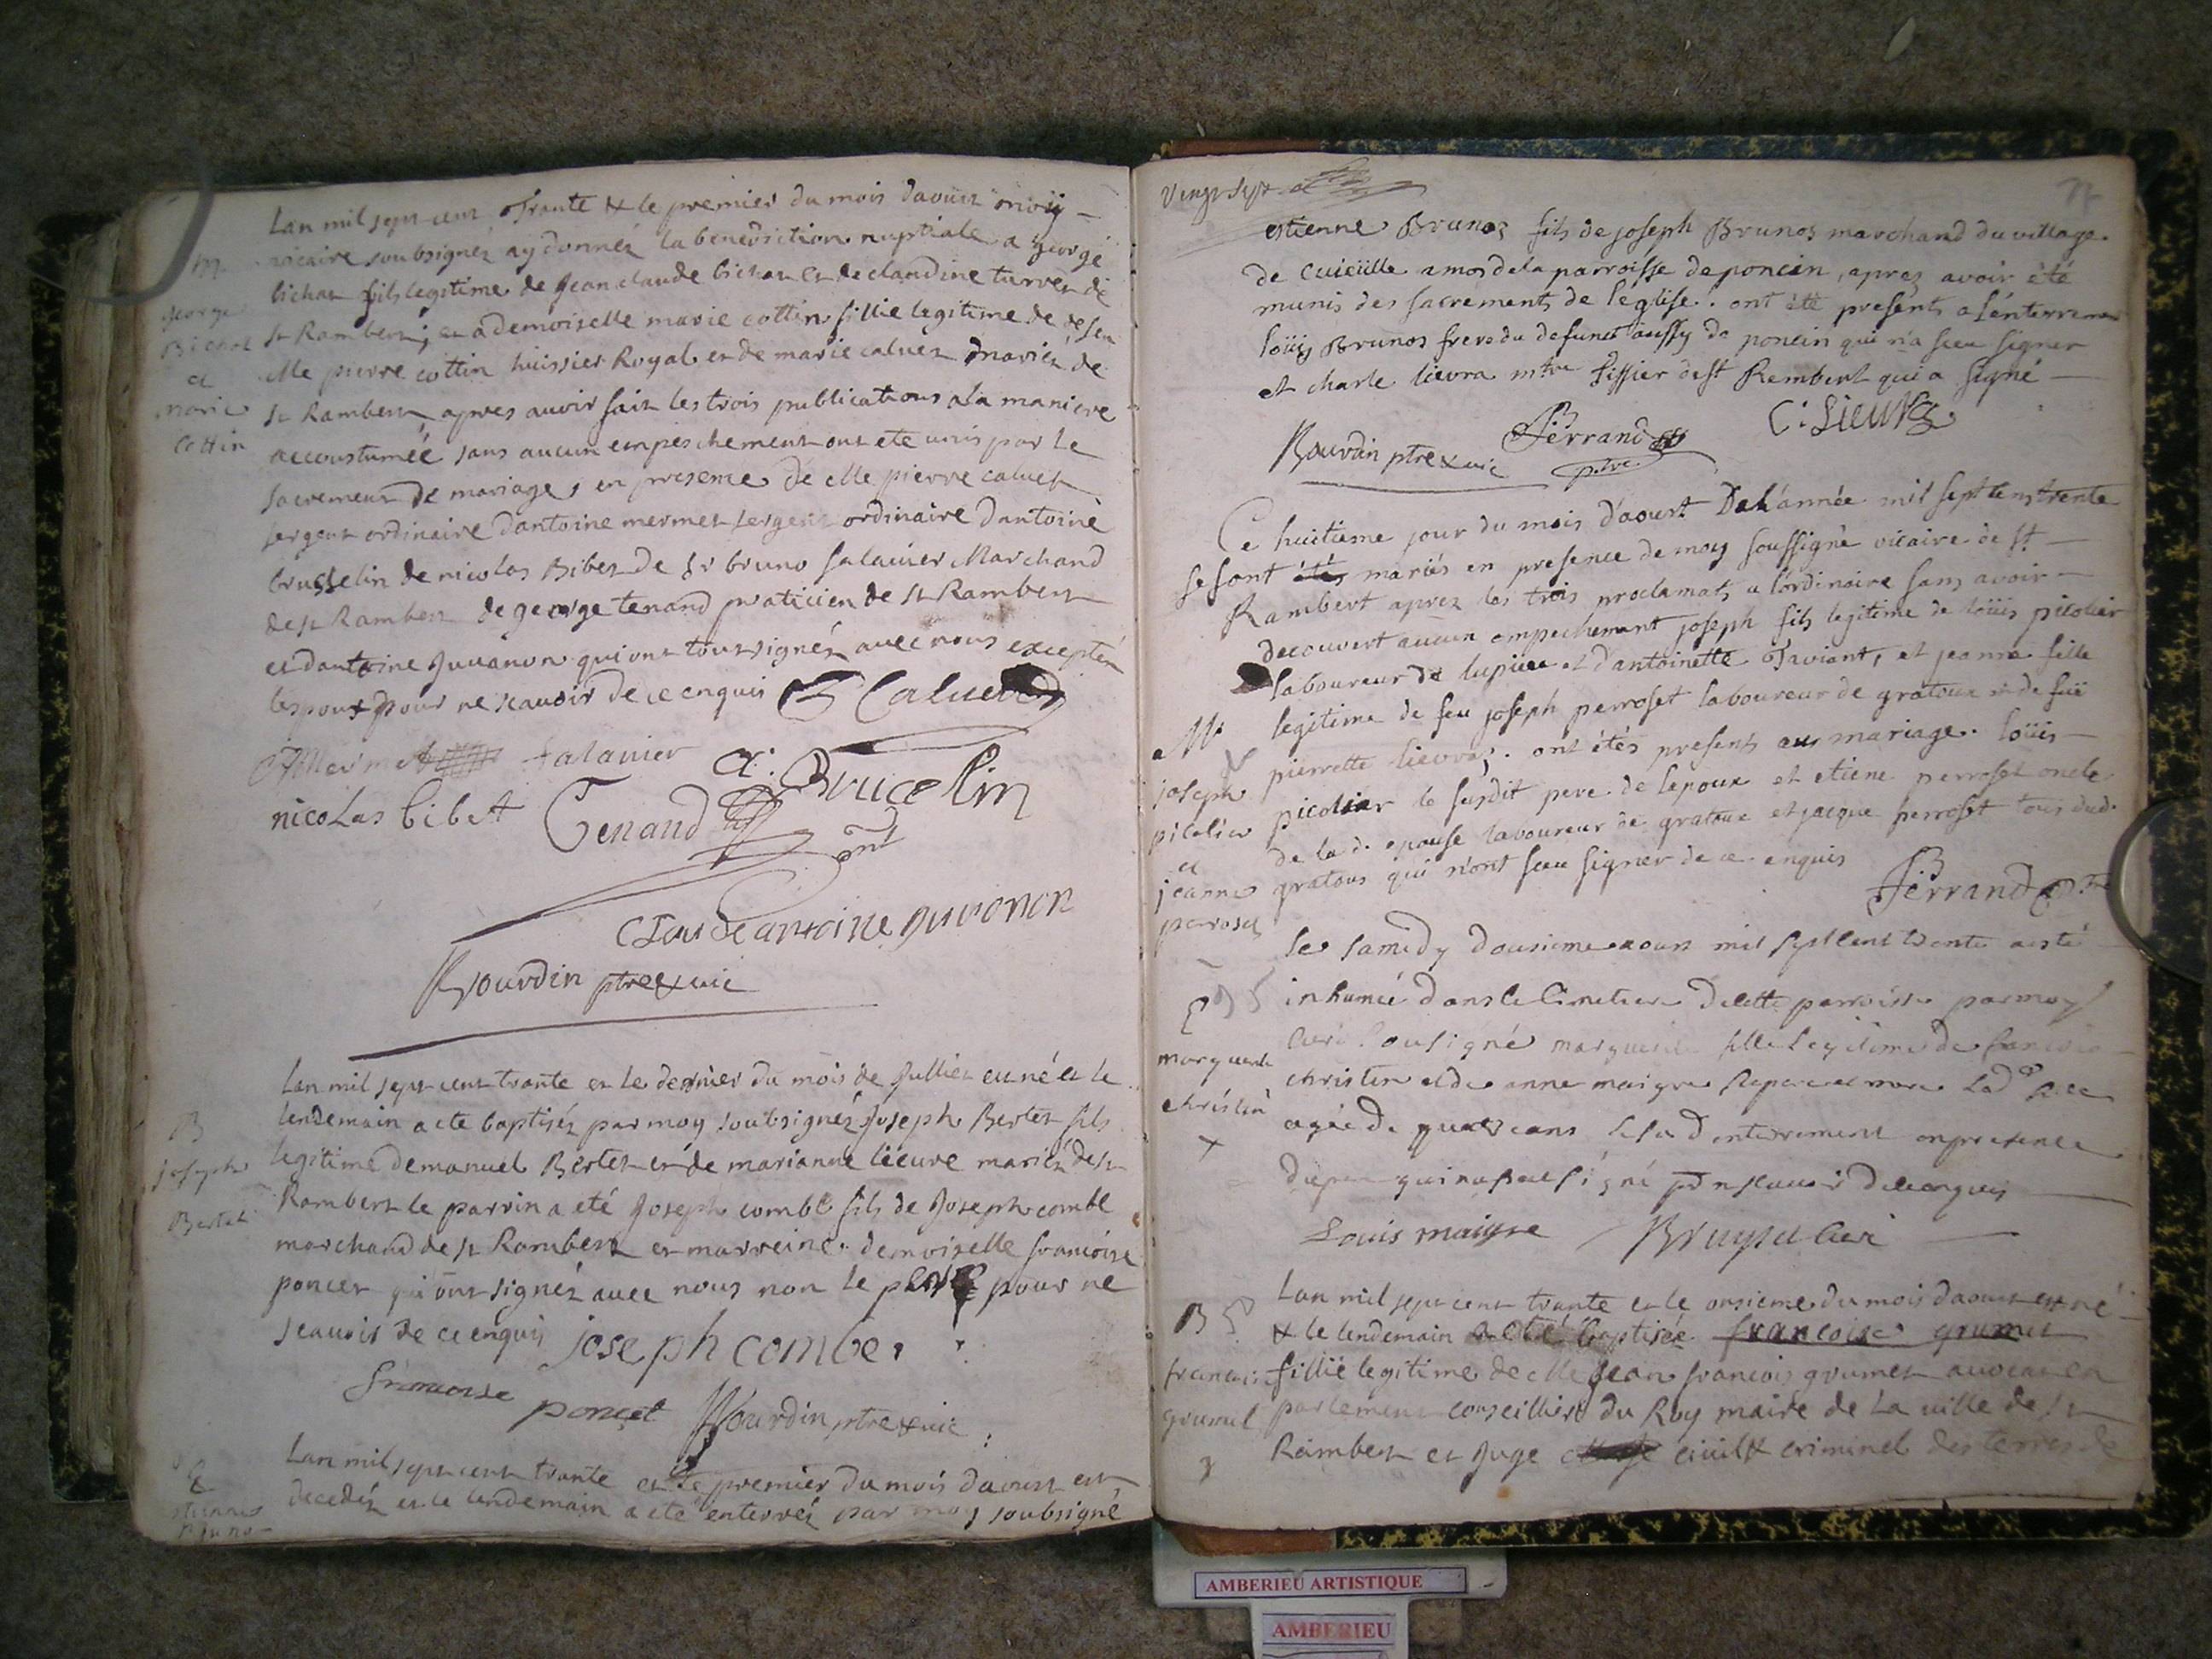 Lan mil sept cent trante & le premier du mois daoust moy
vicaire soubsignez ay donnéz la benediction nuptiale a george
bichat fils legitime de Jean claude bichat et de claudine turvet de
st Rambert, et a demoiselle marie cottin fillie legitime de de feu
Me pierre cottin huissier Royal et de marie caluet mariéz de
st Rambert apres auvoir fait les trois publications a la maniere
accoustumée sans aucun empeschement ont ete unis par le
sacrement de mariage, en presence de Me pierre caluet
sergent ordinaire dantoine mermet sergent ordinaire dantoine
brusselin de nicolas Bibet de sr bruno salauier Marchand
de st Rambert de george tenand praticien de st Rambert
et dantoine Juuanon qui ont tout signéz auec nous exceptéz
lespoux pour ne scauoir de ce enquis Caluet
Mermet salauier a: Brucelin
nicolas bibet Tenand
Claude antoine Juvanon
Bourdin ptre & vic
M
george
Bichat
et
marie
Cottin
Lan mil sept cent trante et le dernier du mois de Julliet est né et le
lendemain a ete baptiséz par moy soubsignéz Joseph Bertet fils
legitime demanuel Bertet et de marianne liéure mariéz de st
Rambert le parrin a eté Joseph combe fils de Joseph combe
marchand de st Rambert et marreine demoiselle francoise
poncet qui ont signéz auec nous non le pere pour ne
scauoir de ce enquis joseph combe
francoise poncet Bourdin ptre & vic
B
joseph
Bertet
Lan mil sept cent trante et le premier du mois daoust est
decedéz et le lendemain a eté enterréz par moy soubsigné
E
etienne
Bruno
vingt sept
estienne Brunoz fils de joseph Brunoz marchand du village
de de la parroisse de poncin, aprez avoir été
munis des sacrements de l'eglise. ont été presents a l'énterrement
loüis Brunoz frere du defunct aussy de poncin qui n'a sceu signer
et charle lievra mtre tissier de st Rembert qui a signé
Bourdin ptre & vic Ferrand ptre C: Lieura
Ce huitieme jour du mois d'aoust De l'année mil sept cens trente
se sont étés mariés en presence de moy soussigné vicaire de st
Rambert aprez les trois proclamats a l'ordinaire sans avoir
decouvert aucun empechement joseph fils legitime de loüis picolier
laboureur de lupieu et d'antoinette Taviant, et jeanne fille
legitime de feu joseph perroset laboureur de gratoux et de fuë
pierrette lievra;. ont étés presents aus mariage. loüis
picolier le susdit pere de lepoux et etiene perroset oncle
de la d. epouse laboureur de gratoux et jacque perroset tous dud.
gratous qui n'ont sceu signer de ce enquis Ferrand ptre
M
joseph
picolier
et
jeanne
peroset
Le samedy dousieme aoust mil sept cent trente a esté
inhumée dans le cimetiere de cette parroisse par moy
curé sousigné marguerite fille legitime de francois
christin et de anne maigre ses pere et mere
agée de quatre ans enterrement en presence
du pere qui na sceu signé pr n scauoir de ce enquis
Louis maigre Bruyset curé
E
marguerite
christin
Lan mil sept cent trante et le onsieme du mois daoust est né
& le lendemain a eté baptisée francoise grumet
fillie legitime de Me Jean francois grumet auocat en
parlement conseillier du Roy maire de la uille de st
Rambert et Juge ciuil & criminel des terres de
B
francoise
grumet
AMBERIEU ARTISTIQUE
AMBERIEU